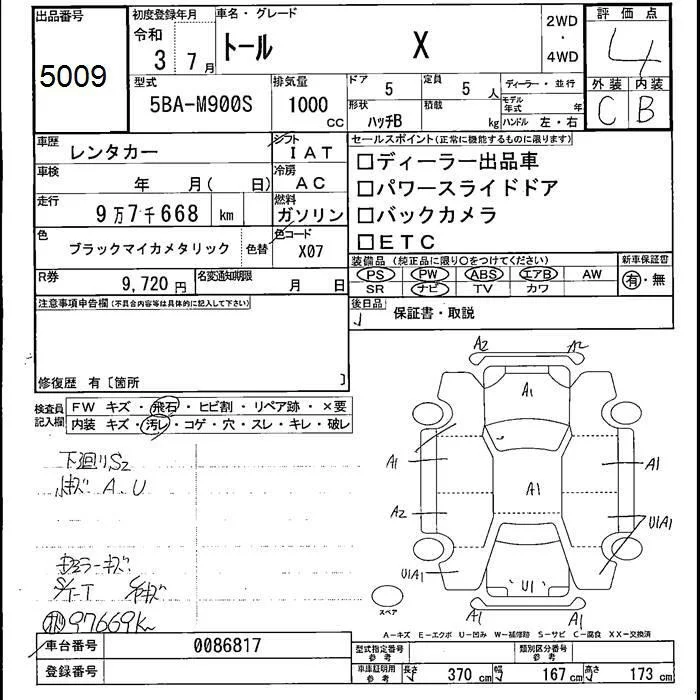 出品番号
5009
初度登録年月
令和
3年 7月
車名・グレード
トール X
2WD
・
4WD
評価点
4
外装 内装
C B
型式
5BA-M900S
排気量
1000
CC
ドア
5
定員
5人
形状
ハッチB
積載
kg
ディーラー・並行
モデル年式 年
ハンドル 左・右
車歴
レンタカー
シフト
IAT
車検
年 月( 日)
冷房
AC
走行
9万7千668 km
燃料
ガソリン
色
ブラックマイカメタリック
色替
色コード
X07
R券
9,720円
名変通知期限
月 日
セールスポイント(正常に機能するものに限ります)
□ディーラー出品車
□パワースライドドア
□バックカメラ
□ETC
装備品 (純正品に限り○をつけてください)
PS PW ABS エアB AW
SR ナビ TV カワ
新車保証書
有・無
後日品
保証書・取説
注意事項申告欄(不具合内容等は具体的に記入して下さい)
修復歴 有〔箇所 〕
検査員
記入欄
FW キズ・飛石・ヒビ割・リペア跡・×要
内装 キズ・汚レ・コゲ・穴・スレ・キレ・破レ
下廻りS2
小キズ A、U
97669K
A2 A2
A1
A1 A1
A1
A2
U1A1
U1A1
U1
A1 A1
スペア
A-キズ E-エクボ U-凹み W-補修跡 S-サビ C-腐食 XX-交換済
車台番号
0086817
登録番号
型式指定番号
参考
類別区分番号
参考
車庫証明用
参考
長さ 370 cm 幅 167 cm 高さ 173 cm